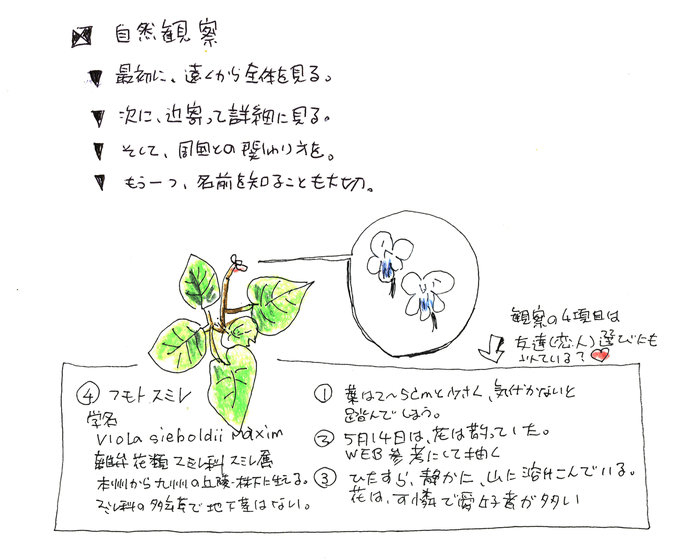 自然観察
最初に、遠くから全体を見る。
次に、近寄って詳細に見る。
そして、周囲との関わり方を。
もう一つ、名前を知ることも大切。
観察の4項目は
友達(恋人)選びにも
にている?
④ フモトスミレ
学名
Viola sieboldii Maxim
離弁花類スミレ科スミレ属
本州から九州の丘陵・林下に生える。
スミレ科の多年草で地下茎はない。
① 葉は2~5cmと小さく、気付かないと
踏んでしまう。
② 5月14日は、花は散っていた。
WEB参考にして描く
③ ひたすら、静かに、山に溶けこんでいる。
花は、可憐で愛好者が多い